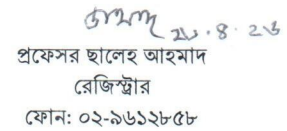 ২০.৪.২৩
প্রফেসর ছালেহ আহমাদ
রেজিস্ট্রার
ফোন: ০২-৯৬১২৮৫৮